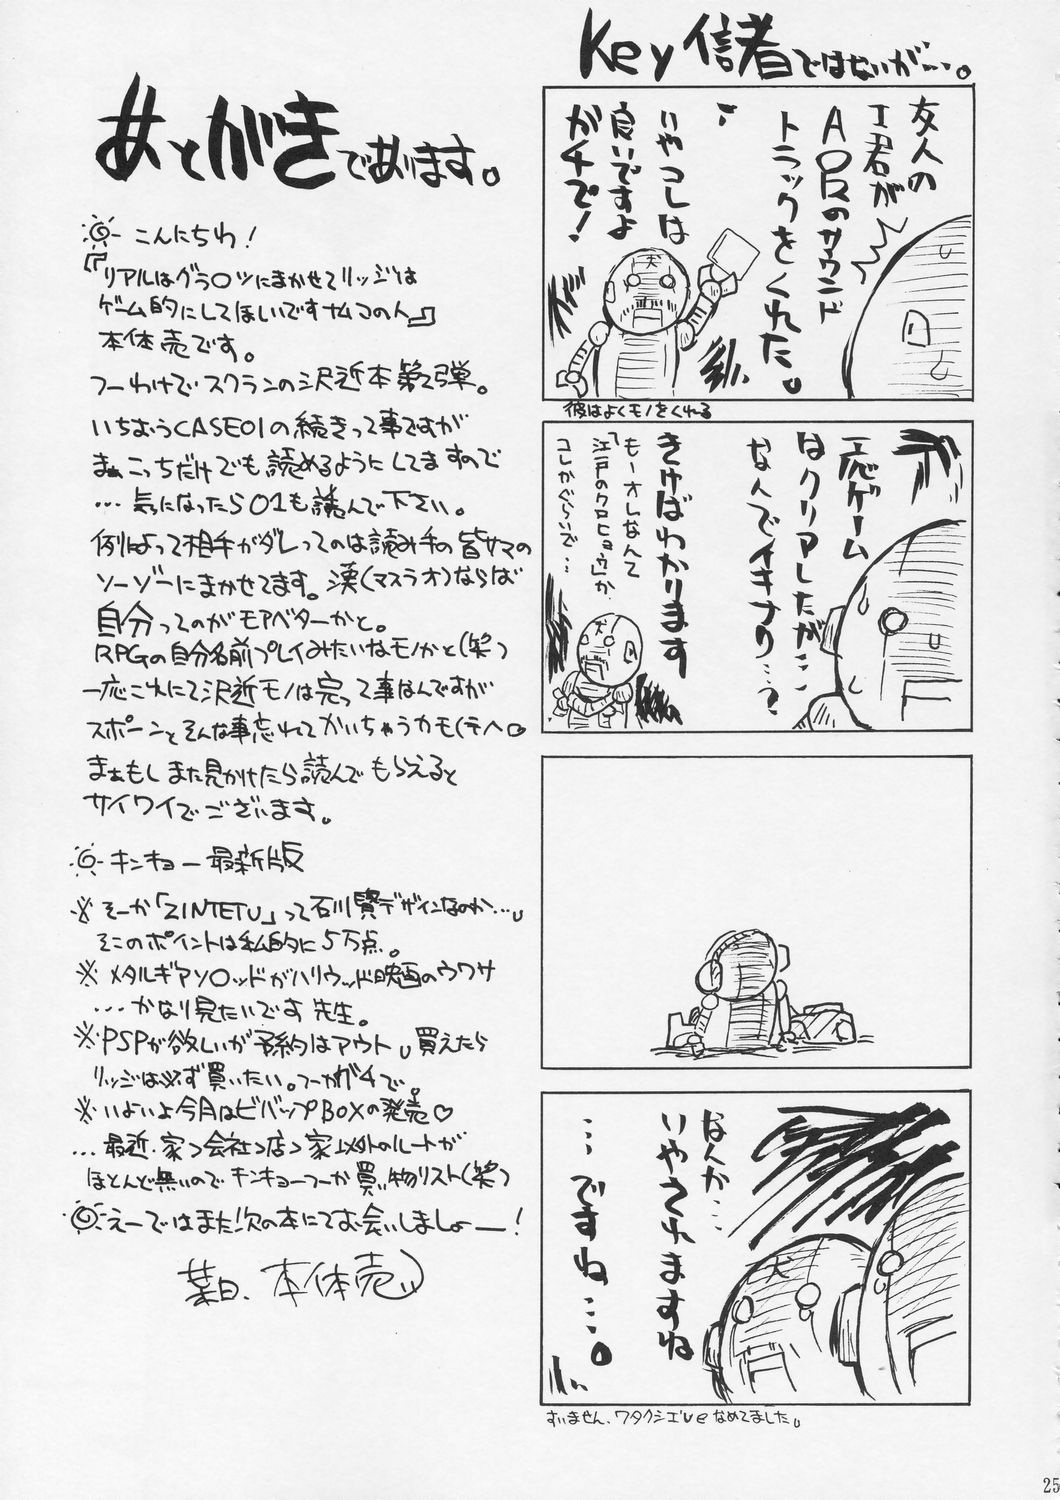 Key信者ではないが…。
友人の
I君が
AIRのサウンド
トラックをくれた。
いやコレは
良いですよ
ガチで!
彼はよくモノをくれる
一応ゲーム
はクリアしたが…
なんでイキナリ…?
きけばわかります
もーオレなんて
「江戸のクロヒョウ」か、
コレかぐらいで…
なんか…
いやされますね
…ですね…。
すいません、ワタクシ なめてました。
あとがきであります。
こんにちわ!
『リアルはグラ○ツにまかせてリッジは
ゲーム的にしてほしいですナムコの人』
本体売です。
つーわけでスクランの沢近本第2弾。
いちおうCASE01の続きって事ですが
まぁこっちだけでも読めるようにしてますので
…気になったら01も読んで下さい。
例によって相手がダレってのは読み手の皆サマの
ソーゾーにまかせてます。漢(マスラオ)ならば
自分ってのがモアベターかと。
RPGの自分名前プレイみたいなモノかと(笑)
一応これにて沢近モノは完って事なんですが
スポーンとそんな事忘れてかいちゃうカモ(テヘ。
まぁもしまた見かけたら読んでもらえると
サイワイでございます。
キンキョー最新版
※そーか「ZINTETU」って石川賢デザインなのか…。
そこのポイントは私的に5万点。
※メタルギアソ○ッドがハリウッド映画のウワサ
…かなり見たいです先生。
※PSPが欲しいが予約はアウト。買えたら
リッジは必ず買いたい。つーかガチで。
※いよいよ今月はビバップBOXの発売♡
…最近家→会社→店→家以外のルートが
ほとんど無いのでキンキョーつーか買い物リスト(笑)
えーではまた次の本にてお会いしましょー!
葉月、本体売
25